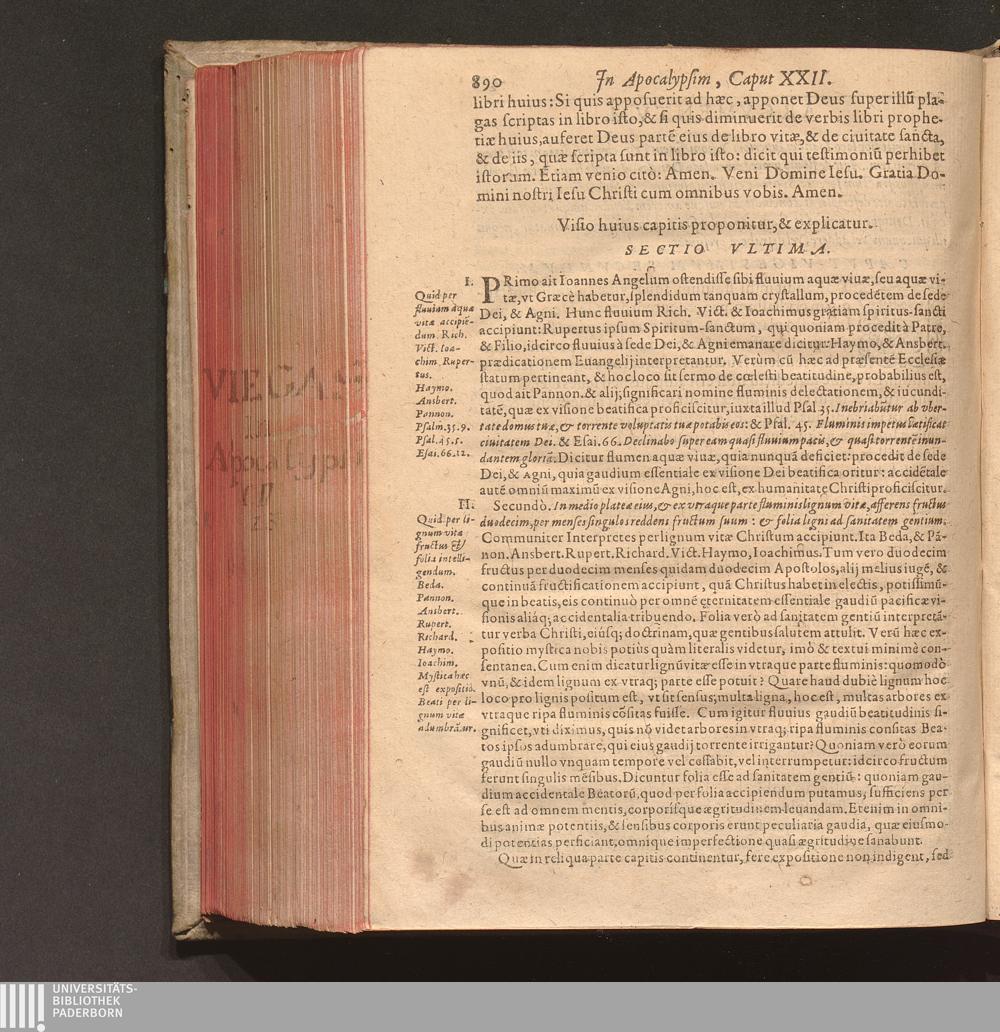 890 In Apocalypsim, Caput XXII.
libri huius: Si quis apposuerit ad hæc, apponet Deus super illũ pla-
gas scriptas in libro isto, & si quis diminuerit de verbis libri prophe-
tiæ huius, auferet Deus partẽ eius de libro vitæ, & de ciuitate sancta,
& de iis, quæ scripta sunt in libro isto: dicit qui testimoniũ perhibet
istorum. Etiam venio citò: Amen. Veni Domine Iesu. Gratia Do-
mini nostri Iesu Christi cum omnibus vobis. Amen.
Visio huius capitis proponitur, & explicatur.
SECTIO VLTIMA.
I.
Quid per
fluuium aquæ
vitæ accipiẽ-
dum. Rich.
Vict. Ioa-
chim. Ruper-
tus.
Haymo.
Ansbert.
Pannon.
Psalm. 35.9.
Psal. 45.5.
Esai. 66.12.
PRimo ait Ioannes Angelum ostendisse sibi fluuium aquæ viuæ, seu aquæ vi-
tæ, vt Græcè habetur, splendidum tanquam crystallum, procedẽtem de sede
Dei, & Agni. Hunc fluuium Rich. Vict. & Ioachimus gratiam spiritus-sancti
accipiunt: Rupertus ipsum Spiritum-sanctum, qui quoniam procedit à Patre,
& Filio, idcirco fluuius à sede Dei, & Agni emanare dicitur: Haymo, & Ansbert.
prædicationem Euangelij interpretantur. Verùm cũ hæc ad præsentẽ Ecclesiæ
statum pertineant, & hoc loco sit sermo de cœlesti beatitudine, probabilius est,
quod ait Pannon. & alij, significari nomine fluminis delectationem, & iucundi-
tatẽ, quæ ex visione beatifica proficiscitur, iuxta illud Psal. 35. Inebriabũtur ab vber-
tate domus tuæ, & torrente voluptatis tuæ potabis eos: & Psal. 45. Fluminis impetus lætificat
ciuitatem Dei. & Esai. 66. Declinabo super eam quasi fluuium pacis, & quasi torrentẽ inun-
dantem gloriã. Dicitur flumen aquæ viuæ, quia nunquã deficiet: procedit de sede
Dei, & Agni, quia gaudium essentiale ex visione Dei beatifica oritur: accidẽtale
autẽ omniũ maximũ ex visione Agni, hoc est, ex humanitate Christi proficiscitur.
II.
Quid per li-
gnum vitæ
fructus &
folia intelli-
gendum.
Beda.
Pannon.
Ansbert.
Rupert.
Richard.
Haymo.
Ioachim.
Mystica hæc
est expositio.
Beati per li-
gnum vitæ
adumbrãtur.
Secundò. In medio plateæ eius, & ex vtraque parte fluminis lignum vitæ, afferens fructus
duodecim, per menses singulos reddens fructum suum: & folia ligni ad sanitatem gentium.
Communiter Interpretes per lignum vitæ Christum accipiunt. Ita Beda, & Pã-
non. Ansbert. Rupert. Richard. Vict. Haymo, Ioachimus. Tum vero duodecim
fructus per duodecim menses quidam duodecim Apostolos, alij melius iugẽ, &
continuã fructificationem accipiunt, quã Christus habet in electis, potissimũ-
que in beatis, eis continuò per omnẽ ęternitatem essentiale gaudiũ pacificæ vi-
sionis aliáq; accidentalia tribuendo. Folia verò ad sanitatem gentiũ interpretã-
tur verba Christi, eiúsq; doctrinam, quæ gentibus salutem attulit. Verũ hæc ex-
positio mystica nobis potius quàm literalis videtur, imò & textui minimè con-
sentanea. Cum enim dicatur lignũ vitæ esse in vtraque parte fluminis: quomodò
vnũ, & idem lignum ex vtraq; parte esse potuit? Quare haud dubiè lignum hoc
loco pro lignis positum est, vt sit sensus; multa ligna, hoc est, multas arbores ex
vtraque ripa fluminis cõsitas fuisse. Cum igitur fluuius gaudiũ beatitudinis si-
gnificet, vti diximus, quis nõ videt arbores in vtraq; ripa fluminis consitas Bea-
tos ipsos adumbrare, qui eius gaudij torrente irrigantur? Quoniam verò eorum
gaudiũ nullo vnquam tempore vel cessabit, vel interrumpetur: idcirco fructum
ferunt singulis mẽsibus. Dicuntur folia esse ad sanitatem gentiũ: quoniam gau-
dium accidentale Beatorũ, quod per folia accipiendum putamus, sufficiens per
se est ad omnem mentis, corporisque ægritudinem leuandam. Etenim in omni-
bus animæ potentiis, & sensibus corporis erunt peculiaria gaudia, quæ eiusmo-
di potentias perficiant, omnique imperfectione quasi ægritudine sanabunt.
Quæ in reliqua parte capitis continentur, fere expositione non indigent, sed
UNIVERSITÄTS-
BIBLIOTHEK
PADERBORN